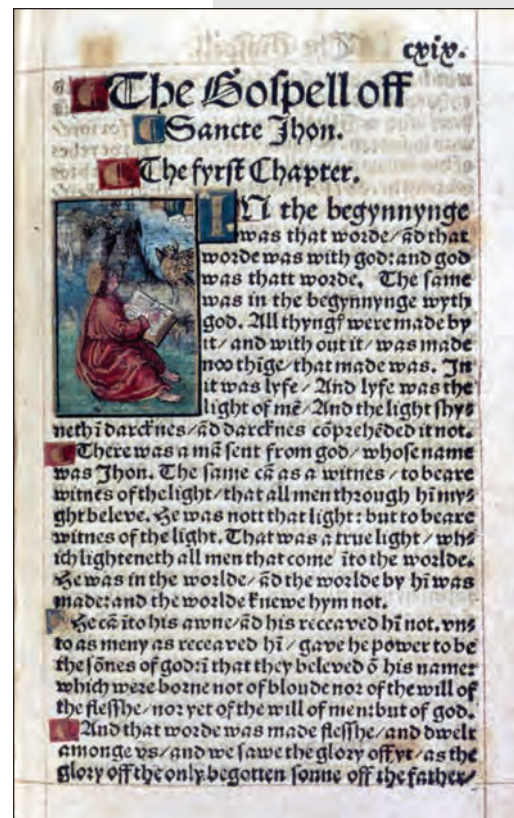 cxix.
The Gospell off
Sancte Jhon.
The fyrst Chapter.
IN the begynnynge
was that worde/ ãd that
worde was with god: and god
was thatt worde. The same
was in the begynnynge wyth
god. All thyngſ were made by
it/ and with out it/ was made
noo thĩge/ that made was. In
it was lyfe/ And lyfe was the
light of mẽ/ And the light ſhy⸗
neth ĩ darcknes/ ãd darcknes cõprehẽded it not.
There was a mã ſent from god/ whoſe name
was Jhon. The ſame cã as a witnes/ to beare
witnes of the light/ that all men through hĩ my⸗
ght beleve. He was nott that light: but to beare
witnes of the light. That was a true light/ whi⸗
ich lighteneth all men that come ĩto the worlde.
He was in the worlde/ ãd the worlde by hĩ was
made: and the worlde knewe hym not.
He cã ĩto his awne/ ãd his receaved hĩ not. vn⸗
to as meny as receaved hĩ/ gave he power to be
the ſõnes of god: ĩ that they beleved õ his name:
which were borne not of bloude nor of the will of
the fleſſhe/ nor yet of the will of men: but of god.
And that worde was made fleſſhe/ and dwelt
amonge vs/ and we ſawe the glory off yt/ as the
glory off the only begotten ſonne off the father/